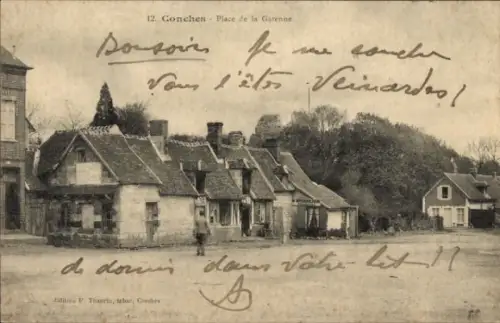 12. Conches - Place de la Garenne
Bonsoir je me coucher
Vous l'êtes Veinardes!
de dormir dans votre lit!!
Edition F. Tabac, Conches